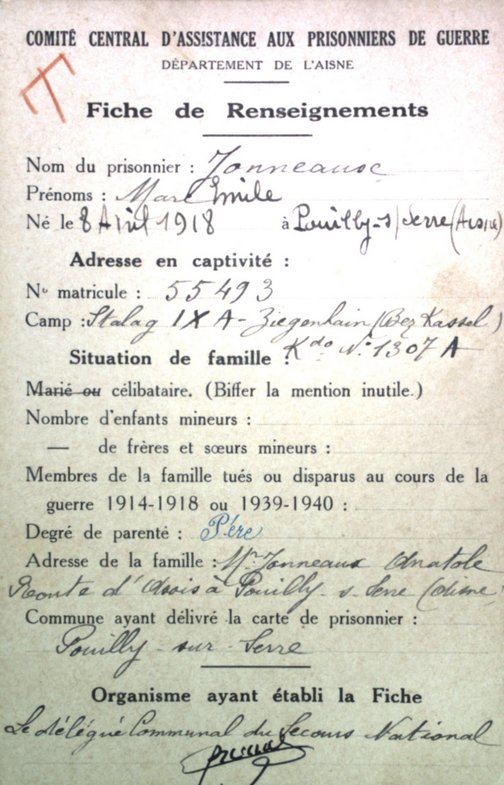 COMITÉ CENTRAL D'ASSISTANCE AUX PRISONNIERS DE GUERRE
DÉPARTEMENT DE L'AISNE
T
Fiche de Renseignements
Nom du prisonnier : Jonneaux
Prénoms : Marc Emile
Né le 8 Avril 1918 à Pouilly-s/Serre (Aisne)
Adresse en captivité :
No matricule : 55493
Camp : Stalag IX A - Ziegenhain (Bez Kassel)
Kdo No 1307 A
Situation de famille :
Marié ou célibataire. (Biffer la mention inutile.)
Nombre d'enfants mineurs :
— de frères et sœurs mineurs :
Membres de la famille tués ou disparus au cours de la
guerre 1914-1918 ou 1939-1940 :
Degré de parenté : Père
Adresse de la famille : Mr Jonneaux Anatole
Route d'Assis à Pouilly-s-Serre (Aisne)
Commune ayant délivré la carte de prisonnier :
Pouilly-sur-Serre
Organisme ayant établi la Fiche
Le délégué Communal du Secours National